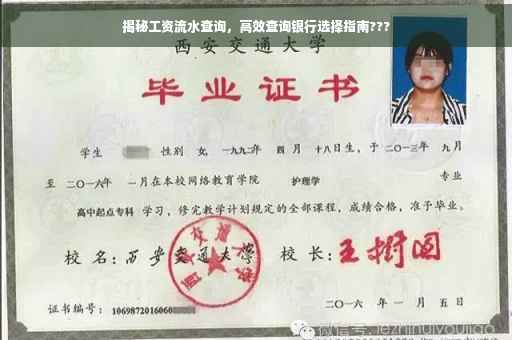 揭秘工资流水查询，高效查询银行选择指南???
西安交通大学
毕业证书
学生 性别 女, 一九九二年 四 月 十八日生, 于 二〇一三年 九月
至 二〇一六年 一月在本校网络教育学院 护理学 专业
高中起点专科 学习, 修完教学计划规定的全部课程, 成绩合格, 准予毕业。
校 名: 西安交通大学 校 长: 王树国
西安交通大学
证书编号: 1069872016060
二〇一六 年 一 月 五 日
微信号: jezhinuiyoujiao